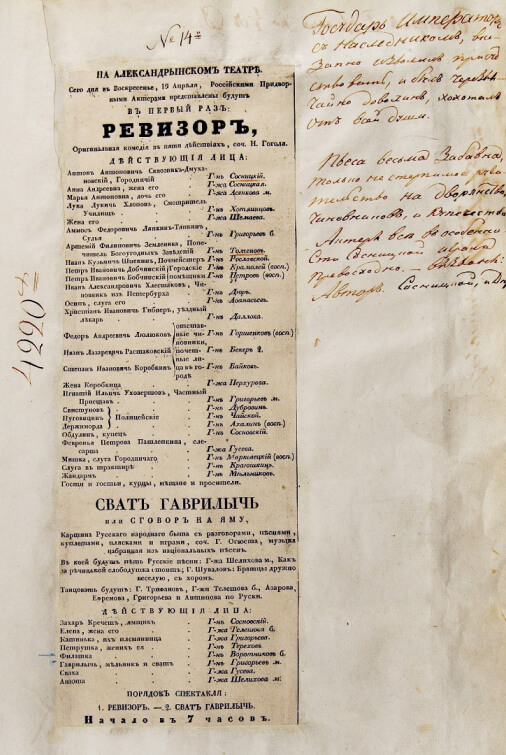 № 14й
НА АЛЕКСАНДРЫНСКОМЪ ТЕАТРѢ.
Сего дня въ Воскресенье, 19 Апрѣля, Россійскими Придвор-
ными Актерами представлены будутъ
ВЪ ПЕРВЫЙ РАЗЪ:
РЕВИЗОРЪ,
Оригинальная комедія въ пяти дѣйствіяхъ, соч. Н. Гоголя.
ДѢЙСТВУЮЩІЯ ЛИЦА:
Антонъ Антоновичь Сквозникъ-Дмуха-
новскій, Городничій Г-нъ Сосницкій.
Анна Андреевна, жена его Г-жа Сосницкая.
Марья Антоновна, дочь его Г-жа Асенкова м.
Лука Лукичь Хлоповъ, Смотритель
Училищь Г-нъ Хотяинцовъ.
Жена его Г-жа Шемаева.
Амосъ Федоровичь Ляпкинъ-Тяпкинъ,
Судья Г-нъ Григорьевъ б.
Артемій Филиповичь Земляника, Попе-
читель Богоугодныхъ Заведеній Г-нъ Толченовъ.
Иванъ Кузьмичь Шпекинъ, Почтмейстеръ Г-нъ Рославской.
Петръ Ивановичь Добчинскій (Городскіе Г-нъ Крамолей (восп.)
Петръ Ивановичь Бобчинскій (помѣщики Г-нъ Петровъ (восп.)
Иванъ Александровичь Хлестаковъ, Чи-
новникъ изъ Петербурга Г-нъ Дюръ.
Осипъ, слуга его Г-нъ Аѳанасьевъ.
Христіанъ Ивановичь Гибнеръ, уѣздный
лѣкарь Г-нъ Даллока.
Федоръ Андреевичь Люлюковъ Г-нъ Горшенковъ (восп.)
отстав-
ные чи-
новники,
Иванъ Лазаревичь Растаковскій почет- Г-нъ Бекеръ 2.
ные ли-
Степанъ Ивановичь Коробкинъ ца въ го- Г-нъ Байковъ.
родѣ
Жена Коробкина Г-жа Перхурова.
Игнатій Ильичь Уховертовъ, Частный
Приставъ Г-нъ Григорьевъ м.
Свистуновъ Г-нъ Дубровинъ.
Пуговицинъ Полицейскіе Г-нъ Чайской.
Держиморда Г-нъ Ахалинъ (восп.)
Абдулинъ, купецъ Г-нъ Сосновскій.
Февронья Петрова Пашлепкина, сле-
сарша Г-жа Гусева.
Мишка, слуга Городничаго Г-нъ Марковецкій (восп.)
Слуга въ трактирѣ Г-нъ Краюшкинъ.
Жандармъ Г-нъ Мѣльниковъ.
Гости и гостьи, купцы, мѣщане и просители.
СВАТЪ ГАВРИЛЫЧЬ
ИЛИ СГОВОРЪ НА ЯМУ,
Картина Русскаго народнаго быта съ разговорами, пѣснями,
куплетами, плясками и играми, музыка
набранная изъ національныхъ пѣсенъ.
Въ коей будутъ пѣть Русскія пѣсни: Г-жа Шелихова м., Какъ
за рѣчинькой слободушка стоитъ; Г. Шуваловъ: Братцы дружно
веселую, съ хоромъ.
Танцовать будутъ: Г. Трифановъ, Г-жи Телешова б., Азарова,
Ефремова, Григорьева и Антипова по Руски.
ДѢЙСТВУЮЩІЯ ЛИЦА:
Захаръ Кречетъ, ямщикъ Г-нъ Сосновскій.
Елена, жена его Г-жа Телешова б.
Катинька, ихъ племянница Г-жа Григорьева.
Петрушка, женихъ ея Г-нъ Тереховъ.
Филашка Г-нъ Воротниковъ б.
Гаврилычь, мѣльникъ и сватъ Г-нъ Григорьевъ м.
Сваха Г-жа Гусева.
Анюта Г-жа Шелихова м.
ПОРЯДОКЪ СПЕКТАКЛЯ:
1. РЕВИЗОРЪ. — 2. СВАТЪ ГАВРИЛЫЧЬ.
Начало въ 7 часовъ.
Государь Императоръ
съ Наслѣдникомъ, вне-
запно изволилъ присут-
ствовать, и былъ чрезвы-
чайно доволенъ, хохоталъ
отъ всей души.
Піеса весьма забавна,
только нестерпимое руга-
тельство на дворянство,
чиновниковъ, и купечество
Актеры всѣ въ особенно-
сти Сосницкій играли
превосходно. —
Авторъ, Сосницкій, и Дюръ
4220